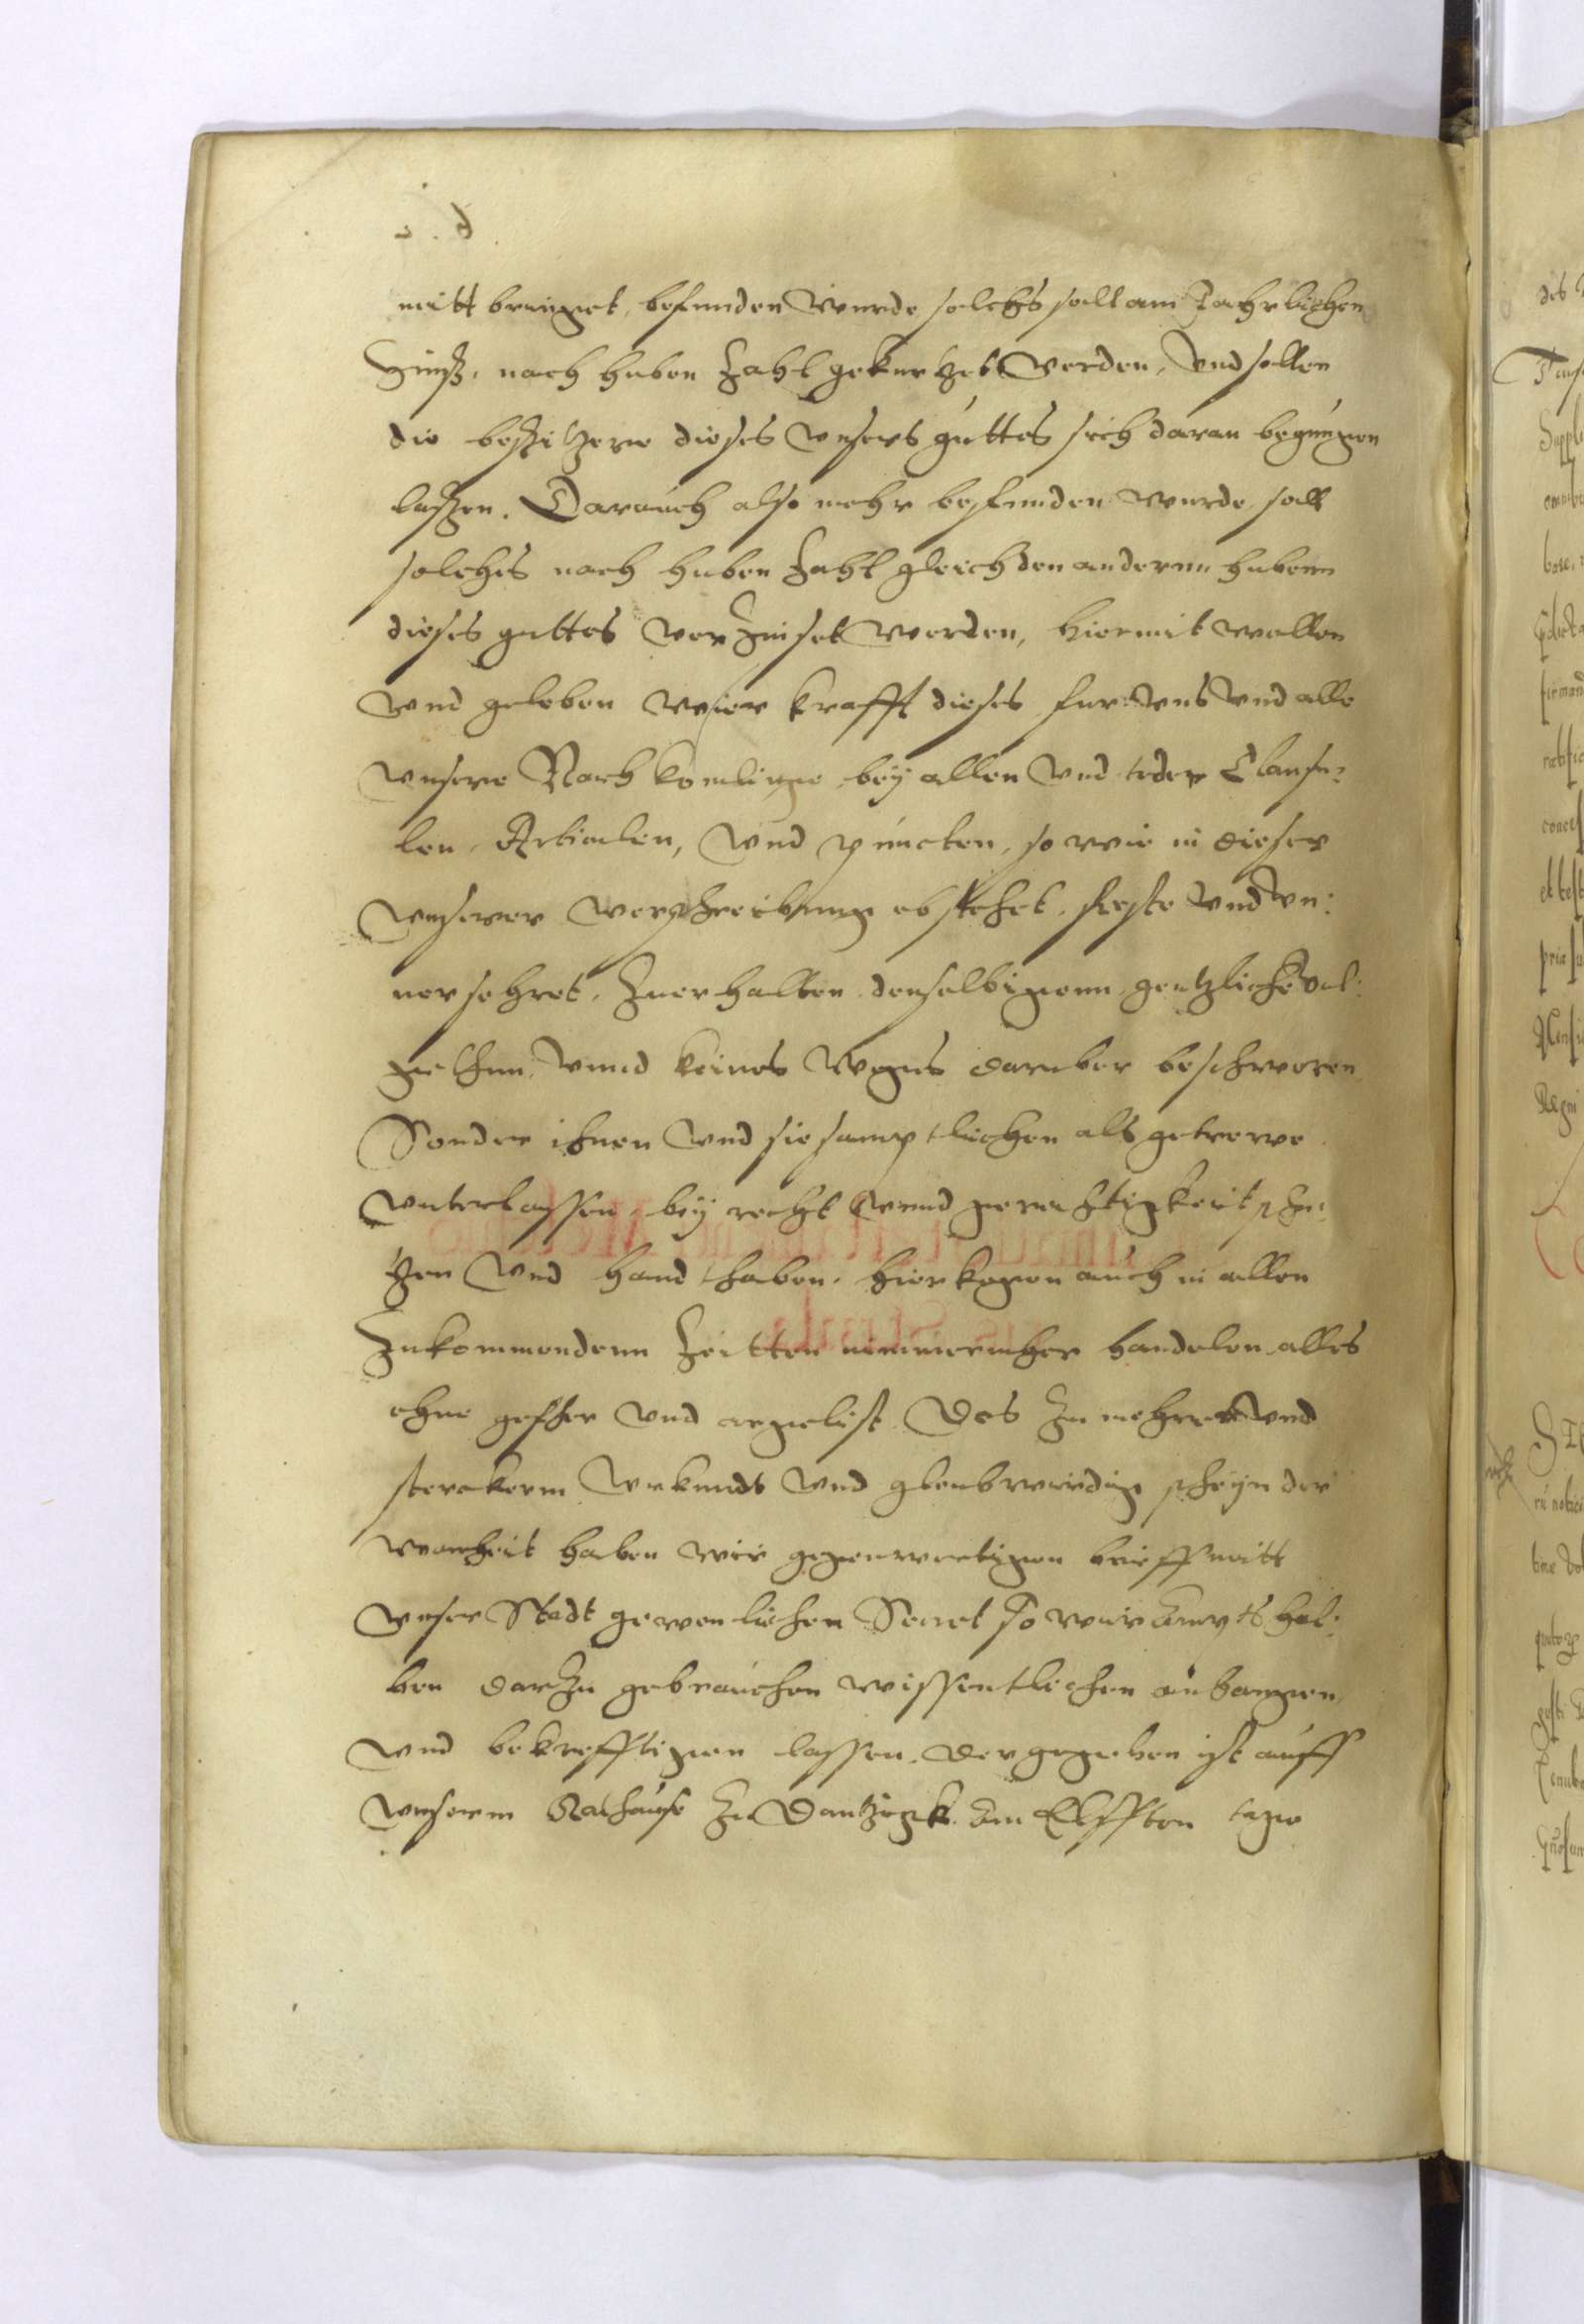 mitt bringet, befunden wurde solchs soll am Jahrlichen
Zinß, nach huben Zahl gekurtzet werden, Vnd sollen
die besitzere dieses vnsers guttes sich daran begnugen
laßen. Dar auch also mehr befunden wurde, soll
solches nach huben Zahl gleich den andernn hubenn
dieses guttes verZinset werden, hiermit wollen
vnd geloben wier krafft dieses fur vns vnd alle
vnsere Nachkomlinge, bey allen vnd jeder Clausu:
len, Articulen, vnd puncten, so wie in dieser
vnserer verschreibung obstehet, feste vnd vn:
versehret, Zuerhalten, denselbigenn gentzliche vol:
gethun, vnnd keines weges daruber beschweren
Sonder ihnen vnd sie samptlichen als getrewe
vnterlassen, bey recht vnnd gerechtigkeit schu:
tzen vnd handthaben, hierkegen auch in allen
Zukommendenn Zeitten nimmermher handelen alles
ohne gefher vnd argelist. Des Zu mehrer vnd
sterckerm vrkundt vnd glaubwirdig scheyn der
warheit haben wir gegenwertigen brieff mitt
vnser Stadt gewonlichen Secret so wir ampts hal:
ben darZu gebrauchen wissentlichen anhangen,
vnd bekrefftigen lassen. Der gegeben ist auff
vnserm Rathause Zu Dantzigk. Am Elfften tage